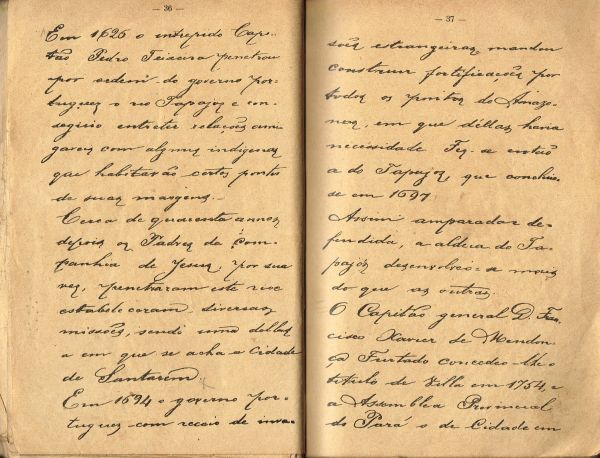 — 36 —
Em 1626 o intrepido Cap-
tão Pedro Teixeira penetrou
por ordem do governo por-
tuguez o rio Tapajos e con-
seguio entreter relações ami-
gaveis com alguns indigenas
que habitavão certos pontos
de suas margens.
Cerca de quarenta annos
depois os Padres da Com-
panhia de Jesus, por sua
vez, penetraram este rio e
estabeleceram diversas
missões, sendo uma dellas
a em que se acha a Cidade
de Santarem.
Em 1694 o governo por-
tuguez com receio de inva-
— 37 —
sões estrangeiras mandou
construir fortificações por
todos os pontos do Amazo-
nas, em que déllas havia
necessidade Fez-se então
a do Tapajos, que concluio-
se em 1697
Assim amparada e de-
fendida, a aldeia do Ta-
pajós desenvolveo-se mais
do que as outras.
O Capitão general D. Fran-
cisco Xavier de Mendon-
ça Furtado concedeo-lhe o
titulo de Villa em 1754, e
a Assemblea Provincial
do Pará o de Cidade em